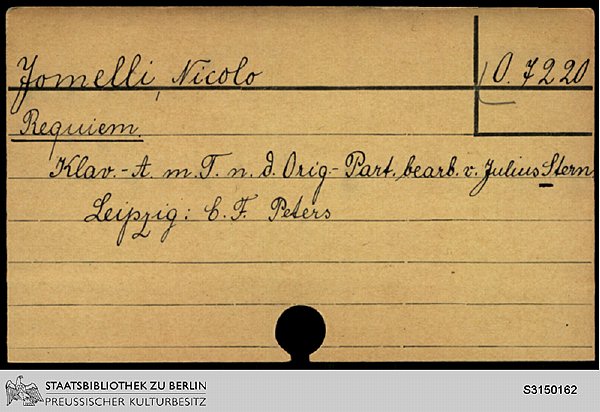 Jomelli, Nicolo
O. 7220
Requiem.
Klav.-A. m. T. n. d. Orig.-Part. bearb. v. Julius Stern.
Leipzig: C. F. Peters
STAATSBIBLIOTHEK ZU BERLIN
PREUSSISCHER KULTURBESITZ
S3150162